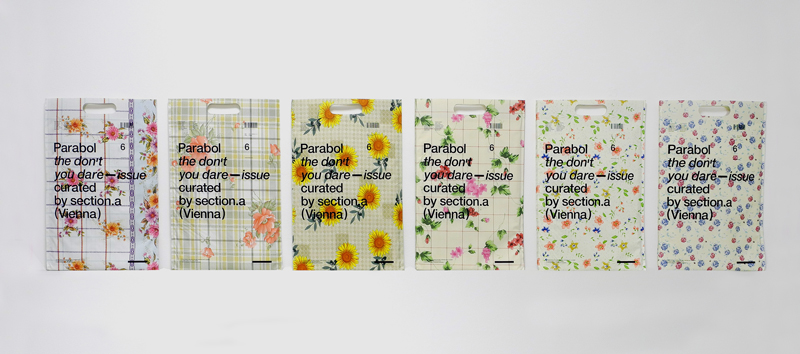 Parabol 6
the don't
you dare—issue
curated
by section.a
(Vienna)
Parabol 6
the don't
you dare—issue
curated
by section.a
(Vienna)
Parabol 6
the don't
you dare—issue
curated
by section.a
(Vienna)
Parabol 6
the don't
you dare—issue
curated
by section.a
(Vienna)
Parabol 6
the don't
you dare—issue
curated
by section.a
(Vienna)
Parabol 6
the don't
you dare—issue
curated
by section.a
(Vienna)